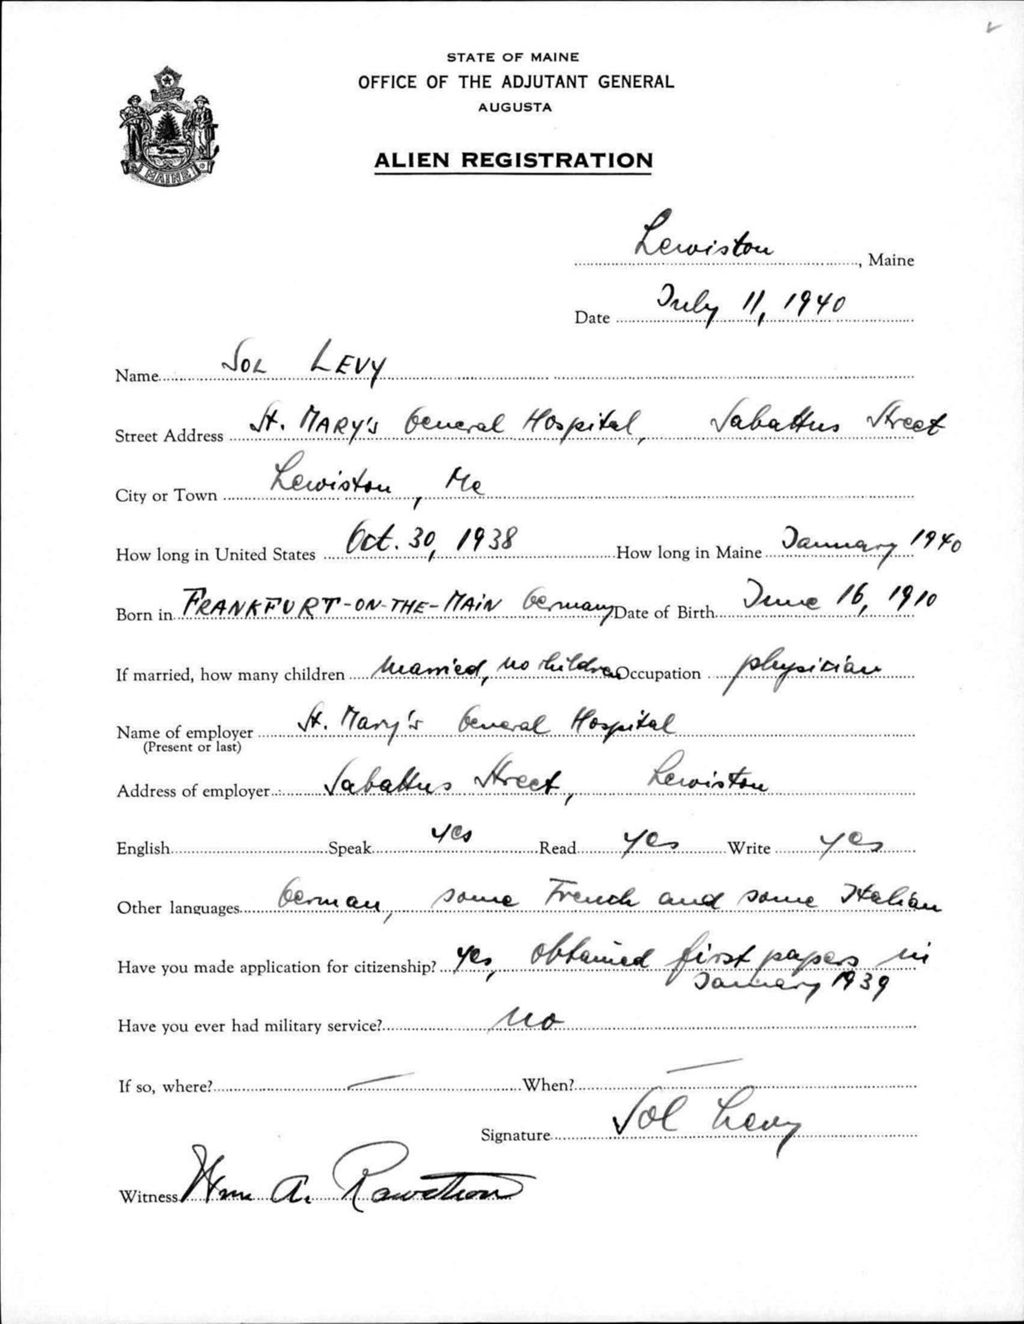 STATE OF MAINE
OFFICE OF THE ADJUTANT GENERAL
AUGUSTA
ALIEN REGISTRATION
MAINE
Lewiston, Maine
Date July 11, 1940
Name Sol Levy
Street Address St. Mary's General Hospital, Sabattus Street
City or Town Lewiston, Me
How long in United States Oct. 30, 1938 How long in Maine January 1940
Born in FRANKFURT-ON-THE-MAIN Germany Date of Birth June 16, 1910
If married, how many children married, no children Occupation physician
Name of employer St. Mary's General Hospital
(Present or last)
Address of employer Sabattus Street, Lewiston
English Speak yes Read yes Write yes
Other languages German, some French and some Italian
Have you made application for citizenship? Yes, obtained first papers in
January 1939
Have you ever had military service? no
If so, where? — When? —
Signature Sol Levy
Witness Wm A.